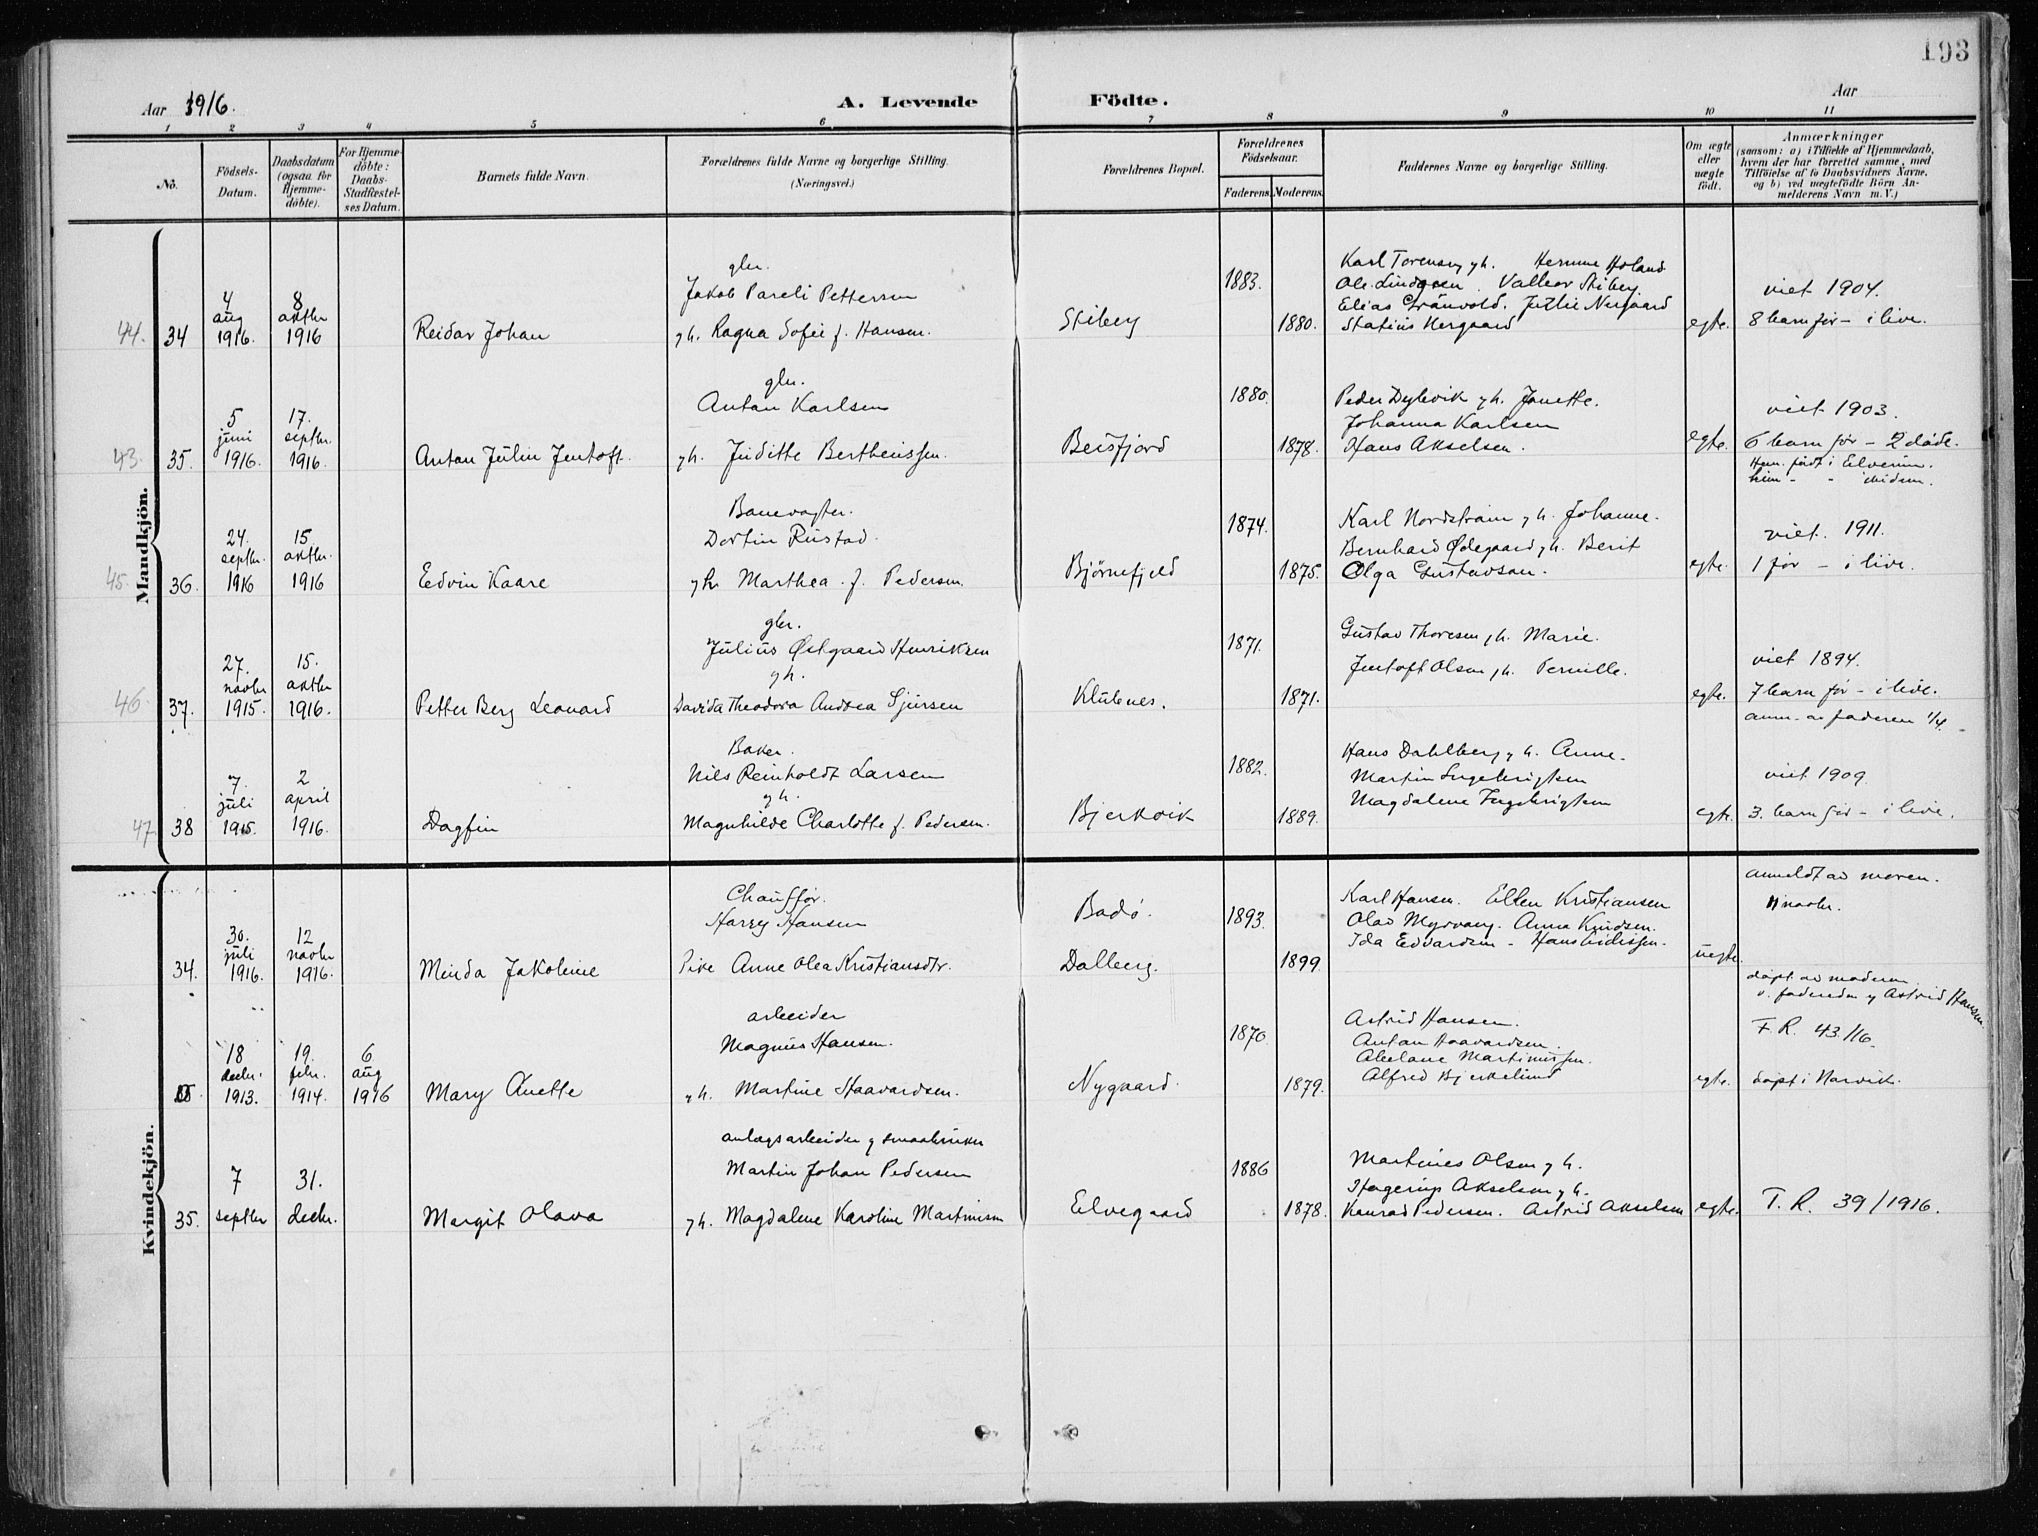 193
Aar 1916.
A. Levende Födte.
Aar
1 2 3 4 5 6 7 8 9 10 11
No.
Födsels-Datum.
Daabsdatum (ogsaa for Hjemme-döbte).
For Hjemme-döbte: Daabs-Stadfæstel-ses Datum.
Barnets fulde Navn.
Forældrenes fulde Navne og borgerlige Stilling.
(Næringsvei.)
Forældrenes Bopæl.
Forældrenes Födselsaar.
Faderens. Moderens.
Faddernes Navne og borgerlige Stilling.
Om ægte eller uægte födt.
Anmærkninger
(saasom: a) i Tilfælde af Hjemmedaab,
hvem der har forrettet samme, med
Tilföielse af to Daabsvidners Navne,
og b) ved uægtefödte Börn An-
melderens Navn m. V.)
Mandkjön.
gbr.
Jakob Pareli Pettersen
1883.
Karl Torensen g h. Hemme Holand
Ole Lindgren. Valbor Skiberg
Elias Grønvold. Julie Nergaard
viet 1904.
44. 34
4 aug 1916.
8 oktbr 1916
Reidar Johan
g h. Ragna Sofie f. Hansen.
Stiberg
1880.
Statius Nergaard
egte.
8 barn før - i live.
gbr.
Anton Karlsen
1880.
Peder Dybvik g h. Janette.
Johanna Karlsen
viet 1903.
43. 35.
5 juni 1916.
17. septbr. 1916.
Anton Julin Jentoft.
g h. Juditte Bertheussen.
Beisfjord
1878.
Hans Akselsen.
egte.
6 barn før - 2 døde.
Ham født i Elverum.
hun - - ibidem.
Banevogter.
Dortin Rustad.
1874.
Karl Nordstrøm g h. Johanne.
Bernhard Ødegaard g h. Berit
viet. 1911.
45. 36.
24. septbr. 1916
15 oktbr. 1916
Edvin Kaare
g h. Marthea f. Pedersen.
Bjørnefjeld
1875.
Olga Gustavson.
egte.
1 før - i live.
gbr.
Julius Østgaard Henriksen
g h.
1871.
Gustav Thoresen g h. Marie.
Jentoft Olsen g h. Pernille.
viet 1894.
46 37.
27. novbr 1915.
15. oktbr 1916.
Petter Berg Leonard
Davida Theodora Andrea Sjursen
Klubnes.
1871.
egte.
7 barn før - i live.
anm. av faderen 1/4.
Baker.
Nils Reinholdt Larsen
g h.
1882.
Hans Dahlberg g h. Anne.
Martin Ingebrigtsen
Magdalene Ingebrigtsen
viet 1909
47 38
7. juli 1915.
2 april 1916.
Dagfin
Magnhilde Charlotte f. Pedersen.
Bjerkvik
1889.
egte.
3. barn før - i live.
Kvindekjön.
Chauffør.
Harry Hansen
Bodø.
1893.
Karl Hansen. Ellen Kristiansen
Olav Myrvang. Anna Knudsen.
Ida Edvardsen -
anmeldt av moren.
11 novbr.
34.
30. juli 1916.
12 novbr 1916.
Minda Jakobine
Pike Anne Olea Kristiansdtr.
Dalberg.
1899
uegte.
døpt av moderen
v. faderen g Astrid Hansen
arbeider
Magnus Hansen.
1870
Astrid Hansen.
Anton Haavardsen.
Abelane Martinussen.
Alfred Bjerkelund
F. R. 43/16.
18 decbr. 1913.
19. febr. 1914.
6 aug 1916
Mary Anette
g h. Martine Haavardsen.
Nygaard.
1879.
egte.
døpt i Narvik.
anlægsarbeider g smaabruker
Martin Johan Pedersen
1886
Martines Olsen g h.
Hagerup Akselsen g h.
35.
7 septbr
31. decbr.
Margit Olava
g h. Magdalene Karoline Martinisen
Elvegaard
1878.
Konrad Pedersen. Astrid Akselsen
egte.
T. R. 39/1916.